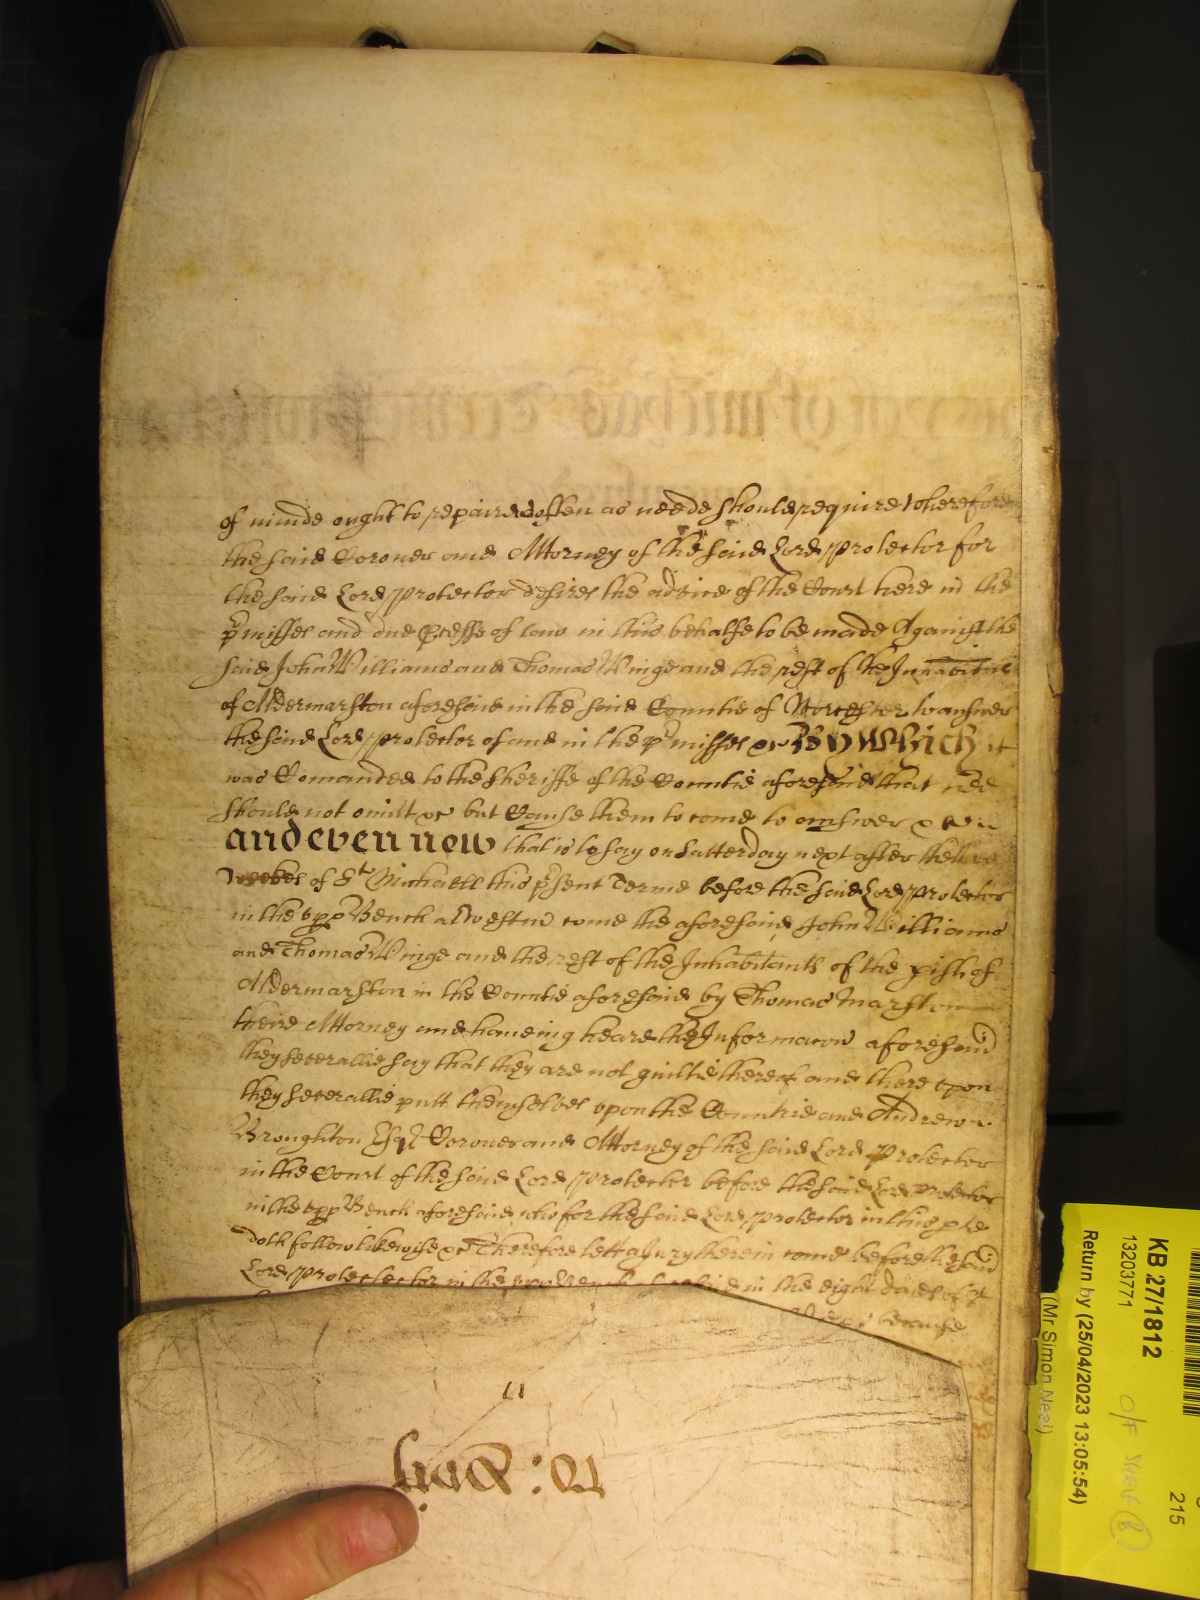 of minde ought to repaire as often as neede should require Wherefore
the said Coroner and Attorney of the said Lord Protector for
the said Lord Protector desires the advice of the Court here in the
p'misses and due p'cesse of law in this behalfe to be made Against the
said John Williams and Thomas Winge and the rest of the Inhabitants
of Aldermarston aforesaid in the said Countie of Worcester to answer
the said Lord Protector of and in the p'misses &c By Which it
was Comanded to the Sheriffe of the Countie aforesaid that hee
should not omitt &c but Cause them to come to answer &c
and even now that is to say on Satterday next after
Weekes of St Michaell this p'sent Terme before the said Lord Protector
in the upp Bench at Westm' come the aforesaid John Williams
and Thomas Winge and the rest of the Inhabitants of the p'ish of
Aldermarston in the Countie aforesaid by Thomas Marston
theire Attorney and haveing heard the Informacon aforesaid
they severallie say that they are not guiltie thereof and there upon
they severallie putt themselves upon the Countrie and Andrew
Broughton Esqr Coroner and Attorney of the said Lord Protector
in the Court of the said Lord Protector before the said Lord Protector
in the upp Bench aforesaid who for the said Lord Protector in this p'te
doth follow likewise &c Therefore lett a Jury therein come before the said
Lord Protector in the upp Bench aforesaid in the eight daies of St
because
KB 27/1812
13203771
Return by (25/04/2023 13:05:54)
(Mr Simon Neal)
215